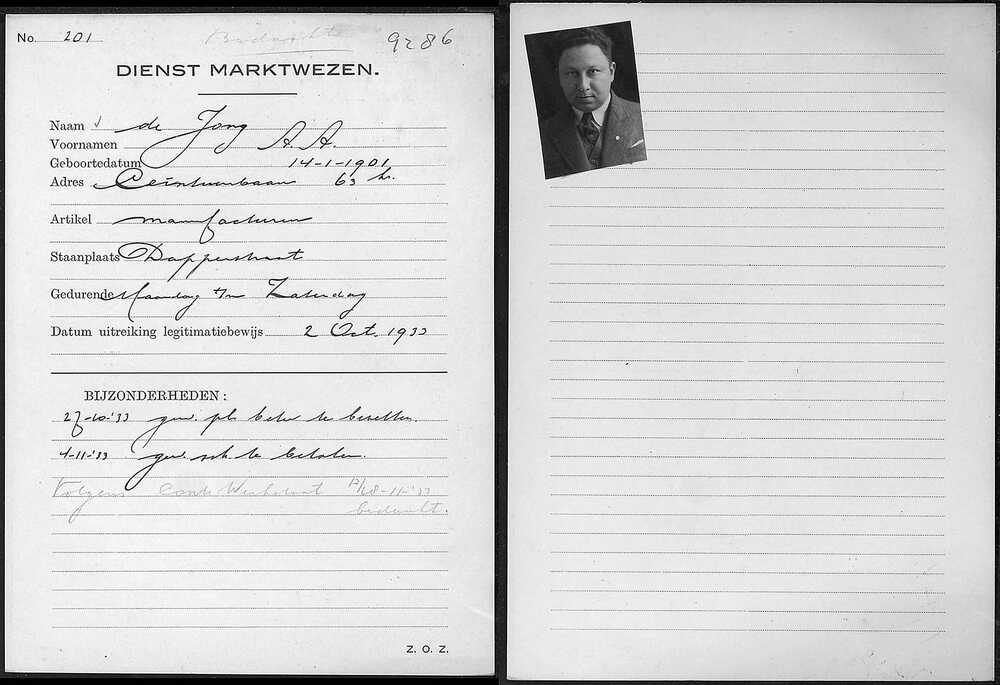 No. 201 Bedankt 9286
DIENST MARKTWEZEN.
Naam de Jong
Voornamen A. A.
Geboortedatum 14-1-1901
Adres Ceintuurbaan 63 hs.
Artikel manufacturen
Staanplaats Dapperstraat
Gedurende Maandag t/m Zaterdag
Datum uitreiking legitimatiebewijs 2 Oct. 1933
BIJZONDERHEDEN:
27-10-'33 gew. pls beter te bezetten.
4-11-'33 gew. te betalen.
Volgens 11-'33
bedankt.
Z. O. Z.